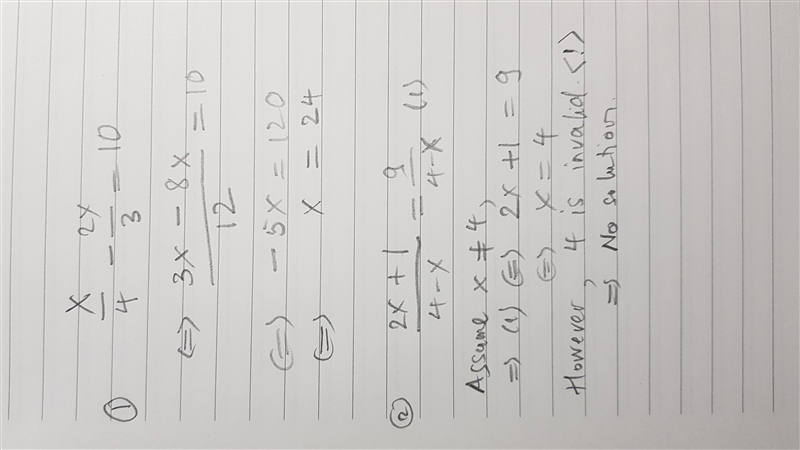 ① x/4 - 2x/3 = 10
(=) 3x - 8x / 12 = 10
(=) -5x = 120
(=) x = 24
② 2x+1 / 4-x = 9 / 4-x (1)
Assume x ≠ 4,
=> (1) (=) 2x+1 = 9
(=) x = 4
However, 4 is invalid <!>
=> No solution.